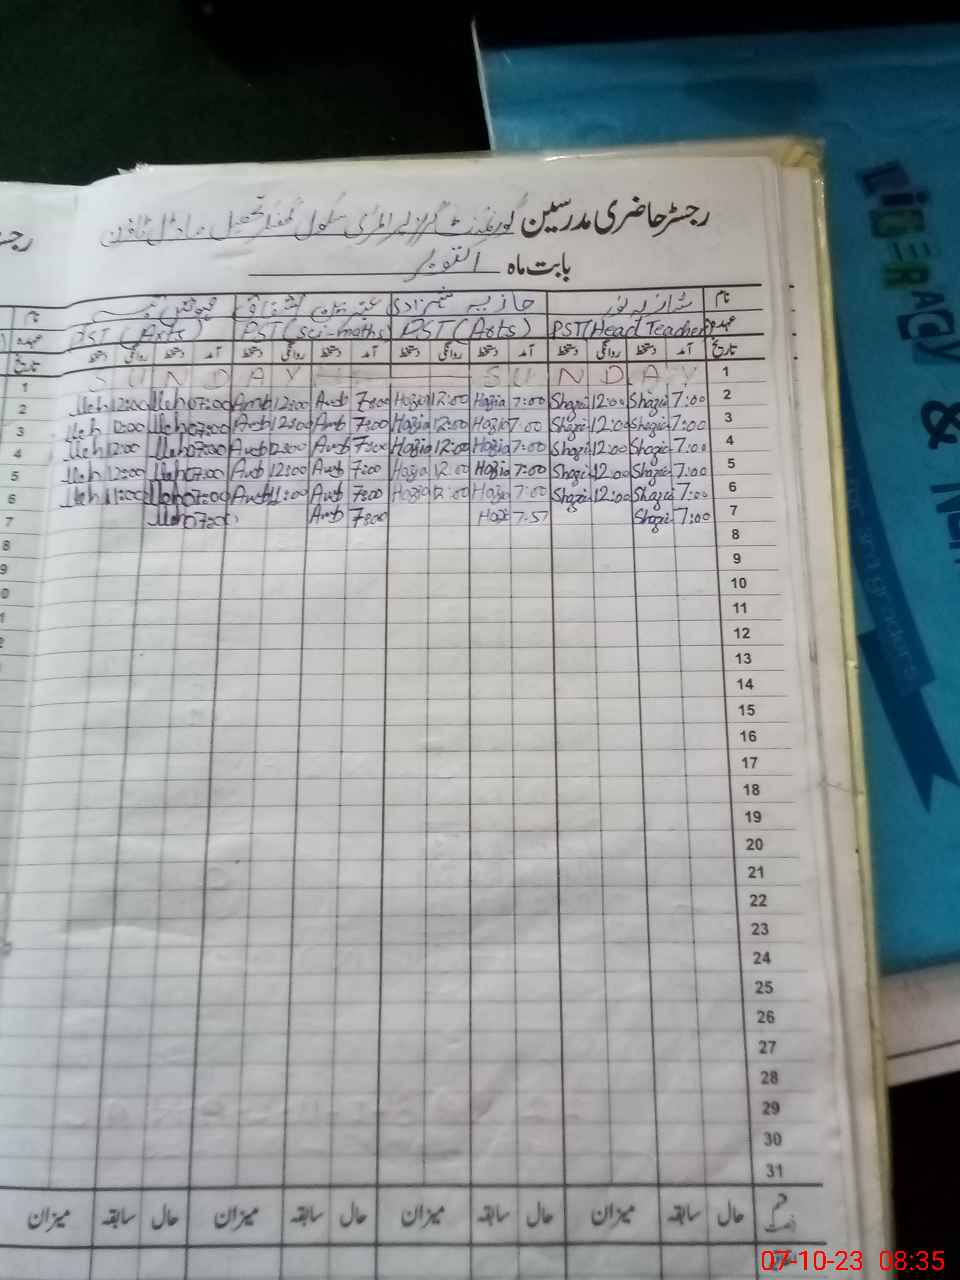 رجسٹر حاضری مدرسین گورنمنٹ گرلز پرائمری سکول تحصیل ماڈل ٹاؤن
بابت ماہ اکتوبر
نام شازیہ نور جازبیہ شہزادی
عہدہ PST(Head Teacher) PST(Arts) PST(sci-maths) PST(Arts)
تاریخ آمد دستخط روانگی دستخط آمد دستخط روانگی دستخط آمد دستخط روانگی دستخط آمد دستخط روانگی دستخط
SUNDAY SUNDAY 1
Meh 12:00 Meh 07:00 Amb 12:00 Amb 7:00 Hazia 12:00 Hazia 7:00 Shazi 12:00 Shazi 7:00 2
Meh 12:00 Meh 07:00 Amb 12:00 Amb 7:00 Hazia 12:00 Hazia 7:00 Shazi 12:00 Shazi 7:00 3
Meh 12:00 Meh 07:00 Amb 12:00 Amb 7:00 Hazia 12:00 Hazia 7:00 Shazi 12:00 Shazi 7:00 4
Meh 12:00 Meh 07:00 Amb 12:00 Amb 7:00 Hazia 12:00 Hazia 7:00 Shazi 12:00 Shazi 7:00 5
Meh 11:00 Meh 07:00 Amb 11:00 Amb 7:00 Hazia 12:00 Hazia 7:00 Shazi 12:00 Shazi 7:00 6
Meh 07:00 Amb 7:00 Hazi 7:57 Shazi 7:00 7
8
9
10
11
12
13
14
15
16
17
18
19
20
21
22
23
24
25
26
27
28
29
30
31
قسم رخصت حال سابقہ میزان حال سابقہ میزان حال سابقہ میزان حال سابقہ میزان
LITERACY & N
2nd graders
07-10-23 08:35